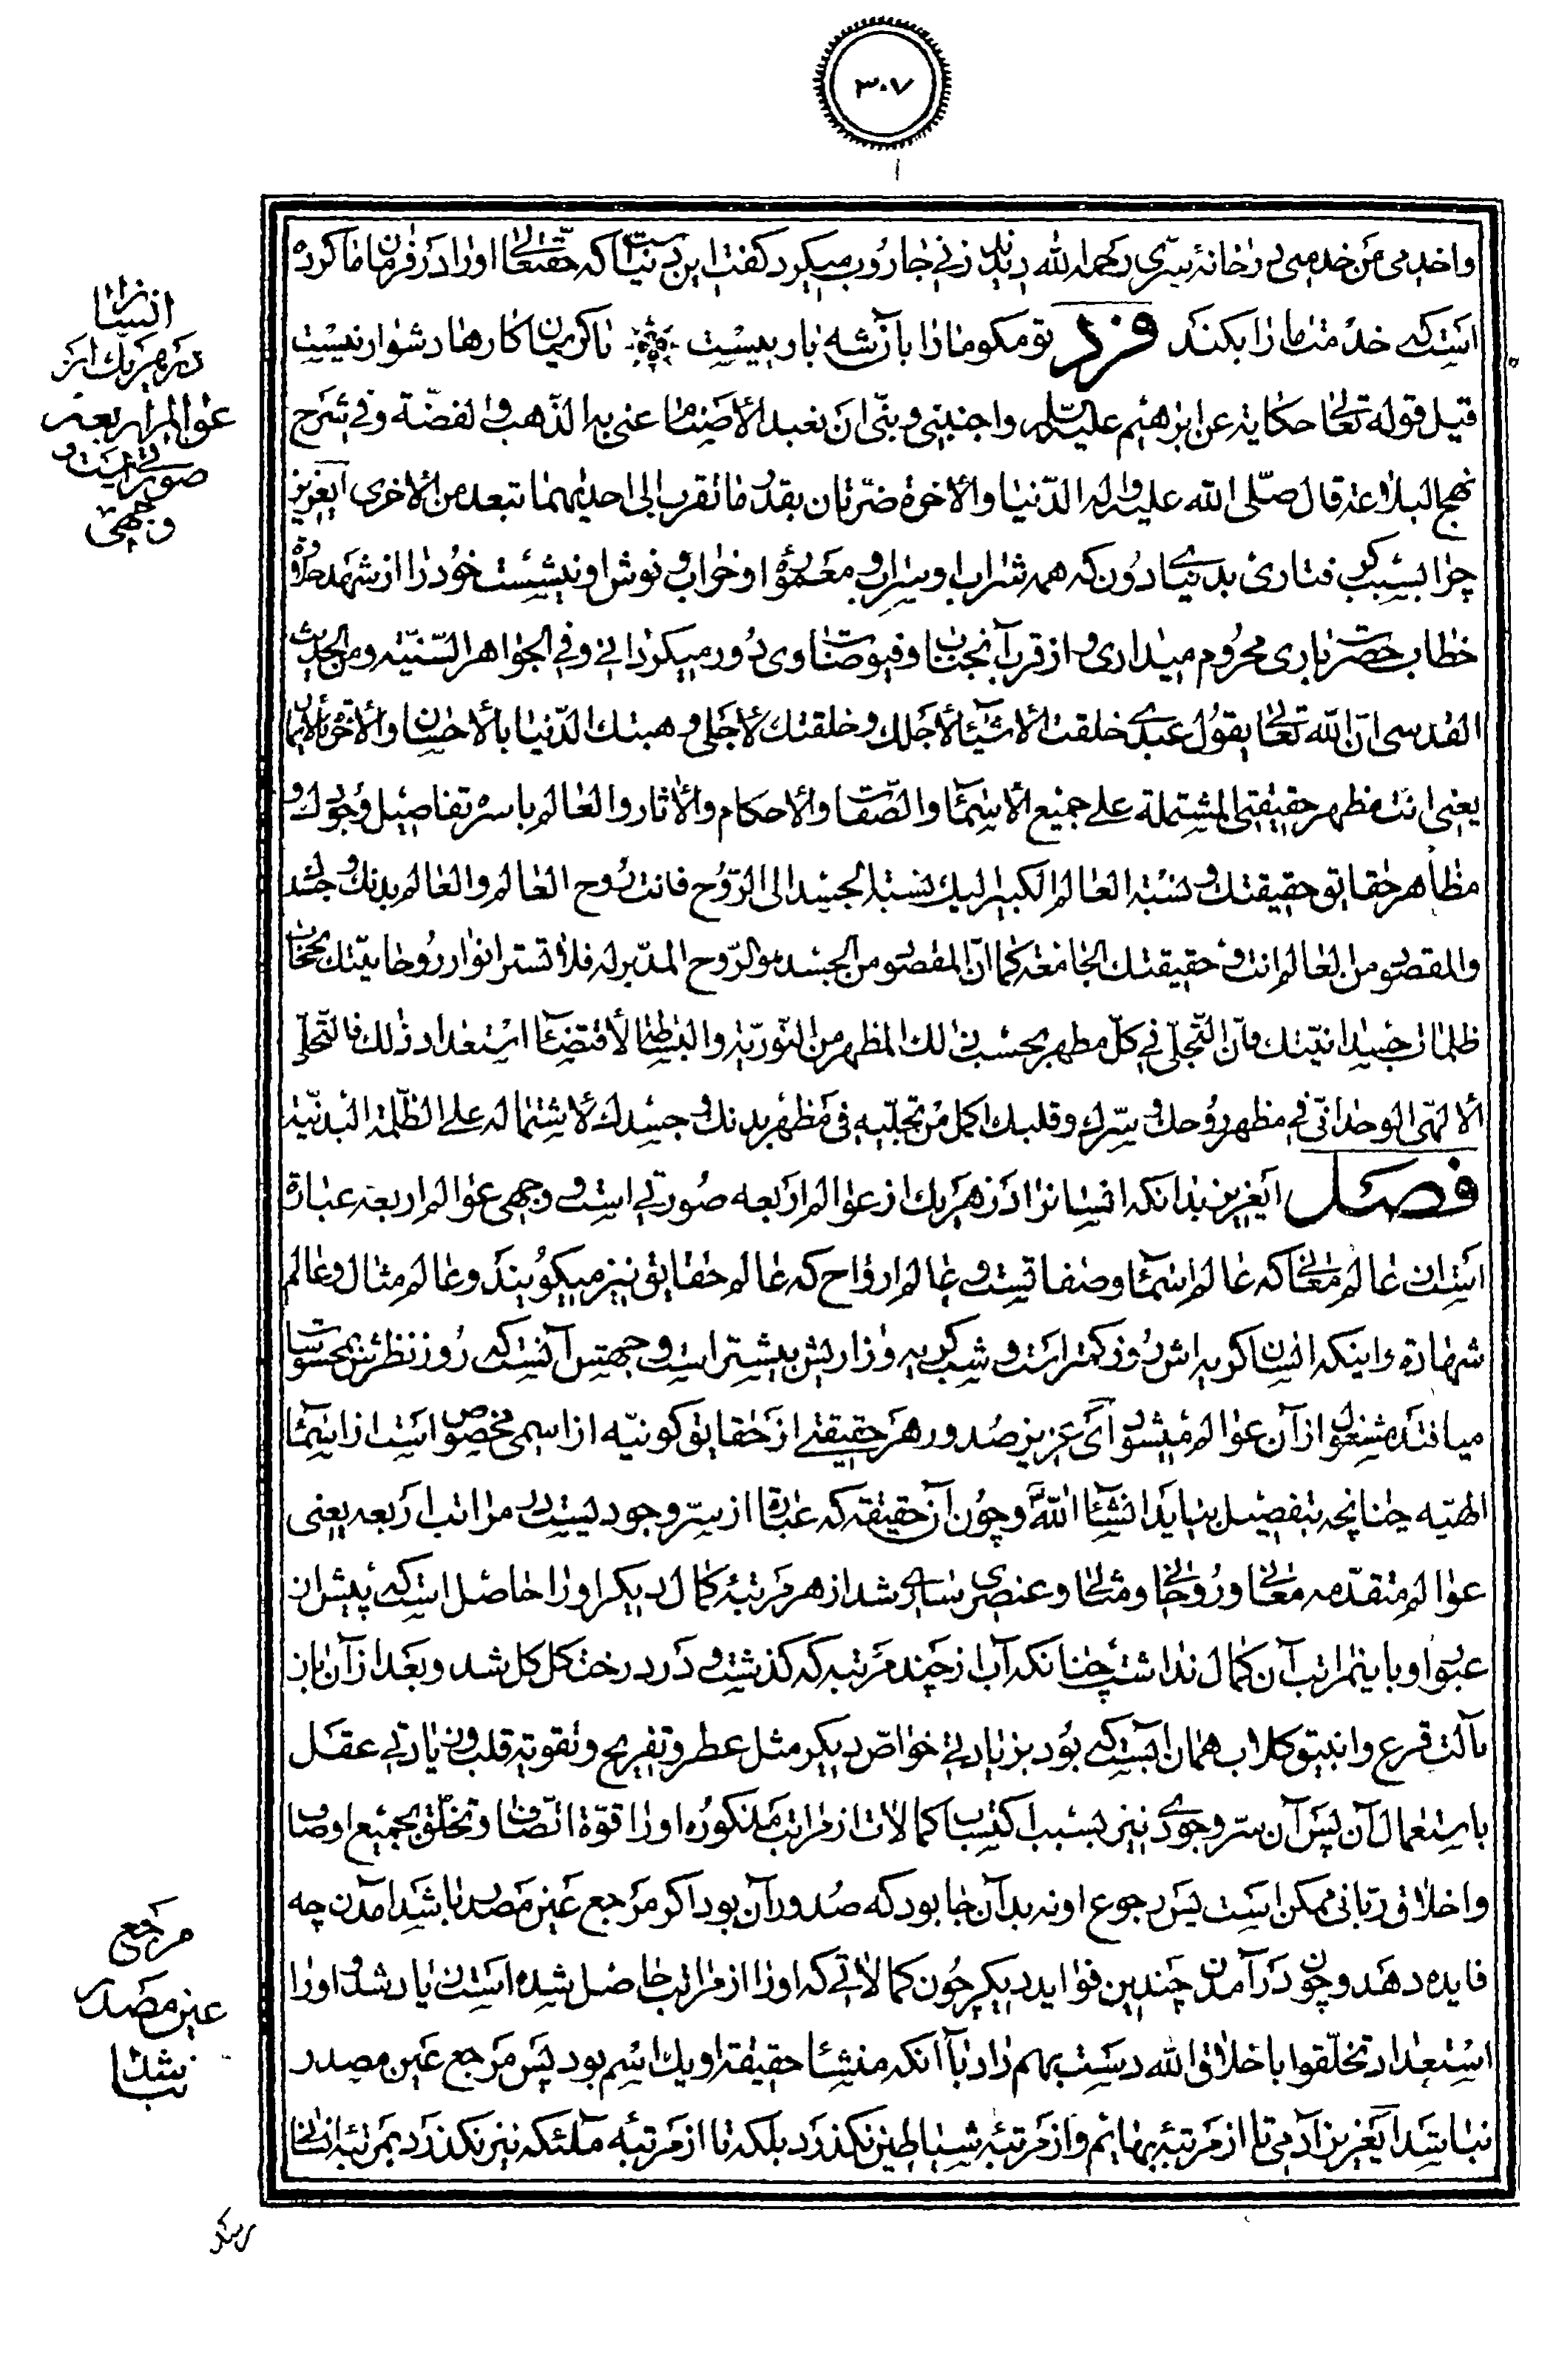 ۳۰۷
واخدمی من خدمنی در خانهٔ سری رحمه الله دیدند زنی جاروب میکرد گفت این دنیاست که حقتعالی اورا در فرمان ما کرده
است که خدمت ما را بکند فرد تو مگو ما را بآن شه بار نیست با کریمان کارها دشوار نیست
قیل قوله تعالی حکایة عن ابرهیم علیه السلام واجنبنی وبنی ان نعبد الأصنام ما عنی به الا الذهب والفضة وفی شرح
نهج البلاغه قال صلی الله علیه واله الدنیا والاخرة ضرتان بقدر ما تقرب الی احدیهما تبعد من الاخری ایعزیز
چرا بسبب گرفتاری بدنیای دون که همه شراب او سراب و معمورهٔ او خراب و نوش او نیش است خود را از شهد حلاوة
خطاب حضرت باری محروم میداری و از قرب آنجناب و فیوضات او دور میگردانی وفی الجواهر السنیه ومن الحدیث
القدسی ان الله تعالی یقول عبدی خلقت الأشیاء لأجلك وخلقتك لأجلی وهبتك الدنیا بالأحسان والأخرة بالأیمان
یعنی انت مظهر حقیقتی المشتملة علی جمیع الأسماء والصفات والأحكام والأثار والعالم باسره تفاصیل وجودك و
مظاهر حقایق حقیقتك ونسبة العالم الکبیر الیك نسبة الجسد الی الروح فانت روح العالم والعالم بدنك وجسدك
والمقصود من العالم انت وحقیقتك الجامعة كما ان المقصود من الجسد هو الروح المدبر له فلا تستر انوار روحانیتك بحجاب
ظلمات جسدانیتك فان التجلی فی كل مظهر بحسب ذلك المظهر من النوریة والبساطة لأقتضاء استعداد ذلك فالتجلی
الألهی الوحدانی فی مظهر روحك وسرك وقلبك اكمل من تجلیه فی مظهر بدنك وجسدك لأشتماله علی الظلمة البدنیة
فصل ایعزیز بدانکه انسانرا در هر یك از عوالم اربعه صورتی است و وجهی عوالم اربعه عبارة
است از عالم معانی که عالم اسماء وصفاتست و عالم ارواح که عالم حقایق نیز میگویند و عالم مثال و عالم
شهادة و اینکه انسان گریه اش روز کمتر است و شب گریه و زاریش بیشتر است و جهتش آنست که روز نظرش بمحسوسات
میافتد مشغول از آن عوالم میشود ای عزیز صدور هر حقیقتی از حقایق کونیه از اسمی مخصوص است از اسماء
الهیه چنانچه بتفصیل بیاید انشاء الله و چون آن حقیقة که عبارة از سر وجودیست در مراتب اربعه یعنی
عوالم متقدمه معانی و روحانی و مثالی و عنصری ساری شد از هر مرتبه کمال دیگر او را حاصل است که پیش از
عبور او باین مراتب آن کمال نداشت چنانکه آب از چند مرتبه که گذشت و در درخت گل گل شد و بعد از آن باز
بآلت قرع و انبیق گلاب همان آبست که بود بزیادتی خواص دیگر مثل عطر و تفریح و تقویة قلب و زیادتی عقل
باستعمال آن پس آن سر وجودی نیز بسبب اکتساب کمالات از مراتب مذکوره او را قوة اتصاف و تخلق بجمیع اوصاف
و اخلاق ربانی ممکن است پس رجوع او نه بدآن جا بود که صدور آن بود اگر مرجع عین مصدر باشد آمدن چه
فایده دهد و چون در آمدن چندین فواید دیگر چون کمالاتی که او را از مراتب حاصل شده است زیاد شد و او را
استعداد تخلقوا باخلاق الله دست بهم داد با آنکه منشاء حقیقة او یك اسم بود پس مرجع عین مصدر
نباشد ایعزیز آدمی تا از مرتبهٔ بهایم و از مرتبهٔ شیاطین نگذرد بلکه تا از مرتبهٔ ملئکه نیز نگذرد بمرتبهٔ انسانی
انسانرا
در هر یك از
عوالم اربعه
صورتی است و
وجهی
مرجع
عین مصدر
نباشد